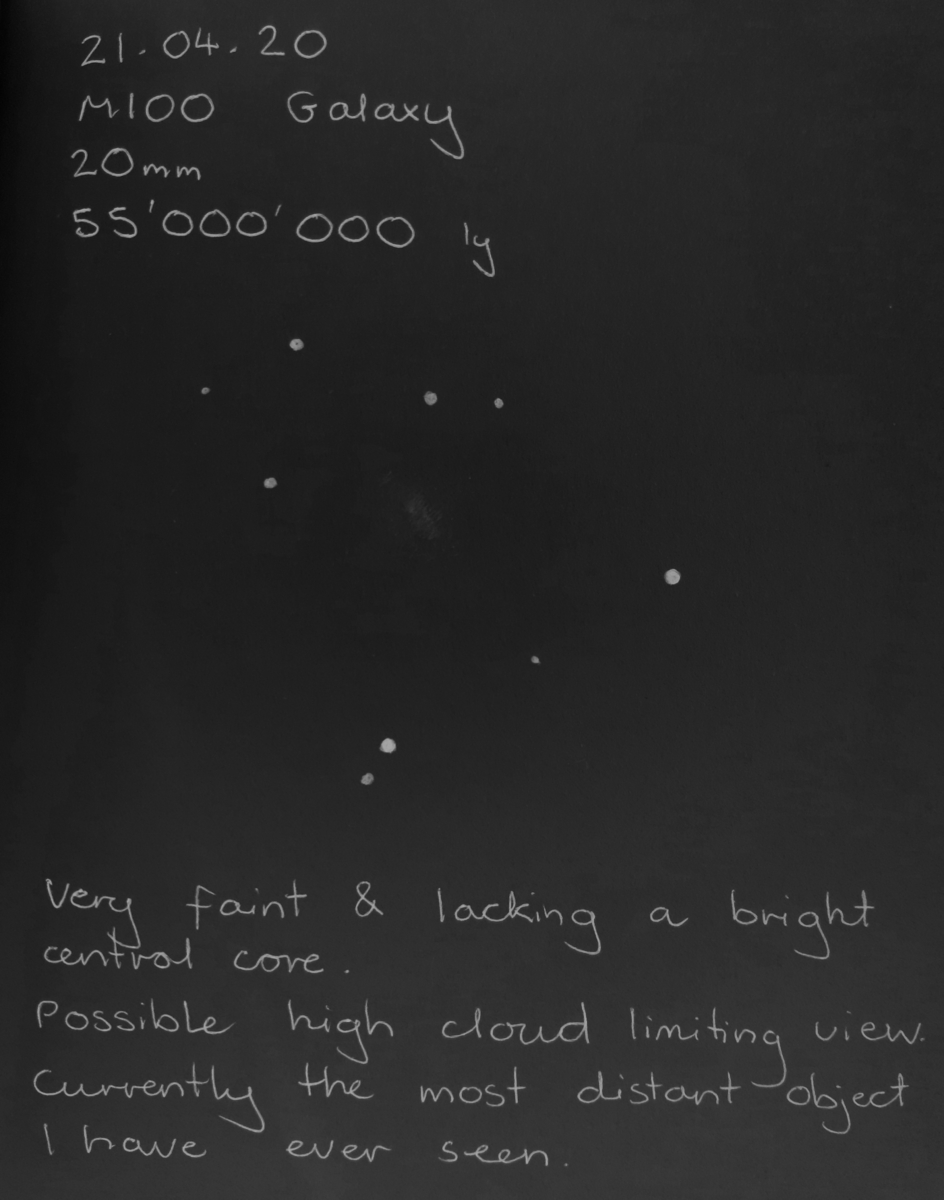 21.04.20
M100 Galaxy
20mm
55'000'000 ly
Very faint & lacking a bright
central core.
Possible high cloud limiting view.
Currently the most distant object
I have ever seen.